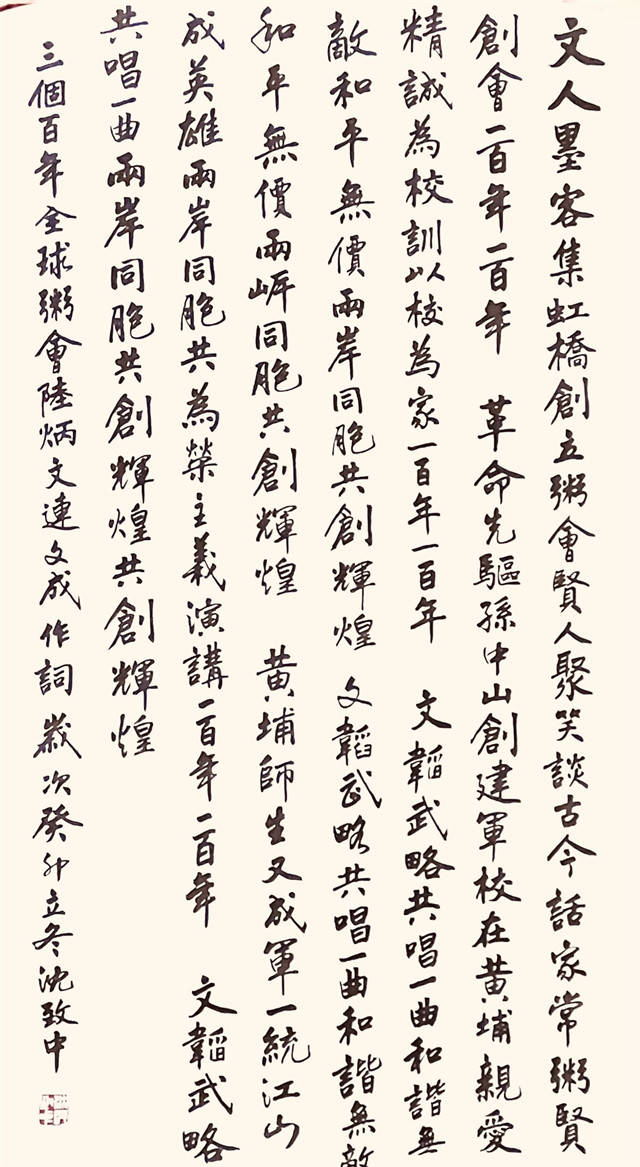 文人墨客集虹橋創立粥會賢人聚笑談古今話家常粥賢
創會一百年一百年 革命先驅孫中山創建軍校在黃埔親愛
精誠為校訓以校為家一百年一百年 文韜武略共唱一曲和諧無
敵和平無價兩岸同胞共創輝煌 文韜武略共唱一曲和諧無敵
和平無價兩岸同胞共創輝煌 黃埔師生又成軍一統江山
成英雄兩岸同胞共為榮主義演講一百年一百年 文韜武略
共唱一曲兩岸同胞共創輝煌共創輝煌
三個百年全球粥會陸炳文連文成作詞 歲次癸卯立冬沈致中